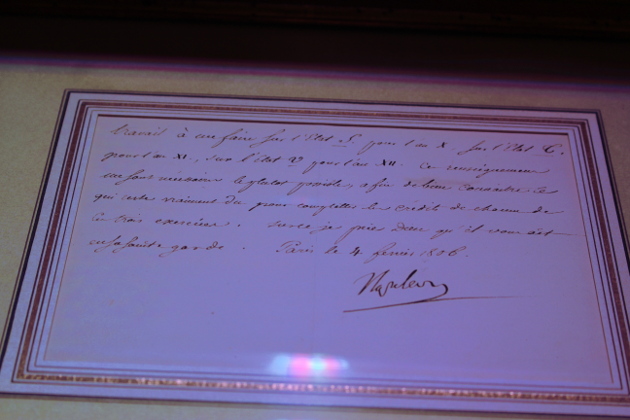 travail à me faire sur l'Etat S. pour l'an X. sur l'Etat C.
pour l'an XI., sur l'état D pour l'an XII. Ces renseignemens
me sont nécessaires le plutot possible, afin de bien connaitre ce
qui reste vraiment du pour completter les crédits de chacun de
ces trois exercices. Sur ce je prie Dieu qu'il vous ait
en sa sainte garde. Paris le 4 fevrier 1806.
Napoleon